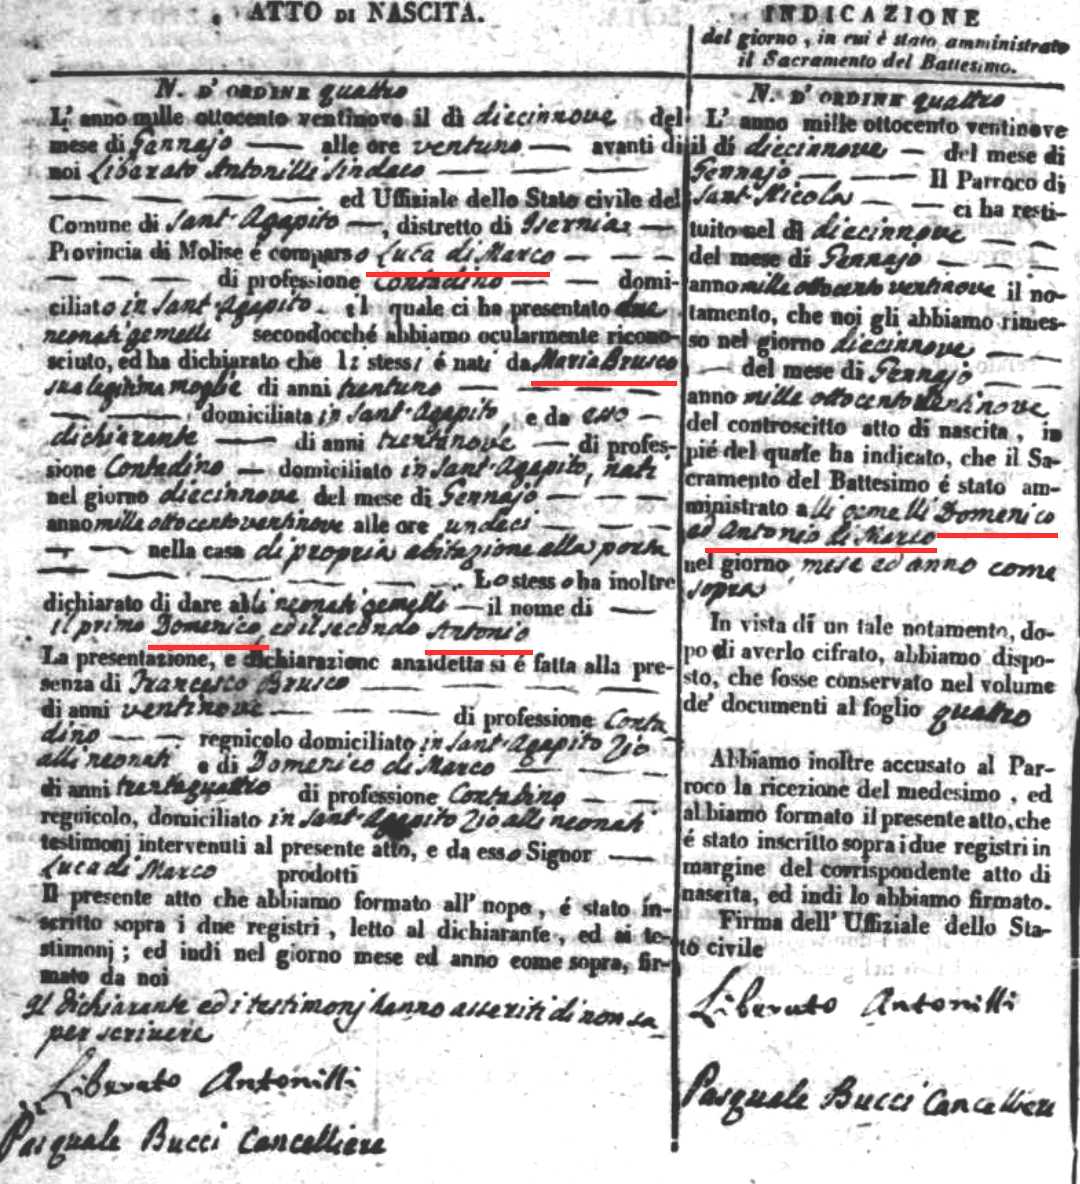 ATTO DI NASCITA.
N. D' ORDINE quattro
L' anno mille ottocento ventinove il dì diecinnove del
mese di Gennajo alle ore ventuno avanti di
noi Liberato Antonilli Sindaco
ed Uffiziale dello Stato civile del
Comune di Sant' Agapito, distretto di Isernia
Provincia di Molise é comparso Luca di Marco
di professione Contadino domi-
ciliato in Sant' Agapito il quale ci ha presentato due
neonati gemelli secondocché abbiamo ocularmente ricono-
sciuto, ed ha dichiarato che li stessi é nati da Maria Brusco
sua legitima moglie di anni trentuno
domiciliata in Sant' Agapito, e da esso
dichiarante di anni trentinove di profes-
sione Contadino domiciliato in Sant' Agapito, nati
nel giorno diecinnove del mese di Gennajo
anno mille ottocento ventinove alle ore undeci
nella casa di propria abitazione alla porta
. Lo stesso ha inoltre
dichiarato di dare alli neonati gemelli il nome di
il primo Domenico ed il secondo Antonio
La presentazione, e dichiarazione anzidetta si é fatta alla pre-
senza di Francesco Brusco
di anni ventinove di professione Conta
dino regnicolo domiciliato in Sant' Agapito Zio
alli neonati e di Domenico di Marco
di anni trentaquattro di professione Contadino
regnicolo, domiciliato in Sant' Agapito Zio alli neonati
testimonj intervenuti al presente atto, e da esso Signor
Luca di Marco prodotti
Il presente atto che abbiamo formato all' uopo, é stato in-
scritto sopra i due registri, letto al dichiarante, ed ai te-
stimonj; ed indi nel giorno mese ed anno come sopra, fir-
mato da noi
Il dichiarante ed i testimonj hanno asseriti di non sa
per scrivere
Liberato Antonilli
Pasquale Bucci Cancelliere
INDICAZIONE
del giorno, in cui è stato amministrato
il Sacramento del Battesimo.
N. D' ORDINE quattro
L' anno mille ottocento ventinove
il dí diecinnove del mese di
Gennajo Il Parroco di
Sant Nicola ci ha resti-
tuito nel dì diecinnove
del mese di Gennajo
anno mille ottocento ventinove il no-
tamento, che noi gli abbiamo rimes-
so nel giorno diecinnove
del mese di Gennajo
anno mille ottocento ventinove
del controscitto atto di nascita, in
pié del quale ha indicato, che il Sa-
cramento del Battesimo é stato am-
ministrato alli gemelli Domenico
ed Antonio di Marco
nel giorno mese ed anno come
sopra
In vista di un tale notamento, do-
po di averlo cifrato, abbiamo dispo-
sto, che fosse conservato nel volume
de' documenti al foglio quattro
Abbiamo inoltre accusato al Par-
roco la ricezione del medesimo, ed
abbiamo formato il presente atto, che
é stato inscritto sopra i due registri in
margine del corrispondente atto di
nascita, ed indi lo abbiamo firmato.
Firma dell' Uffiziale dello Sta-
to civile
Liberato Antonilli
Pasquale Bucci Cancelliere